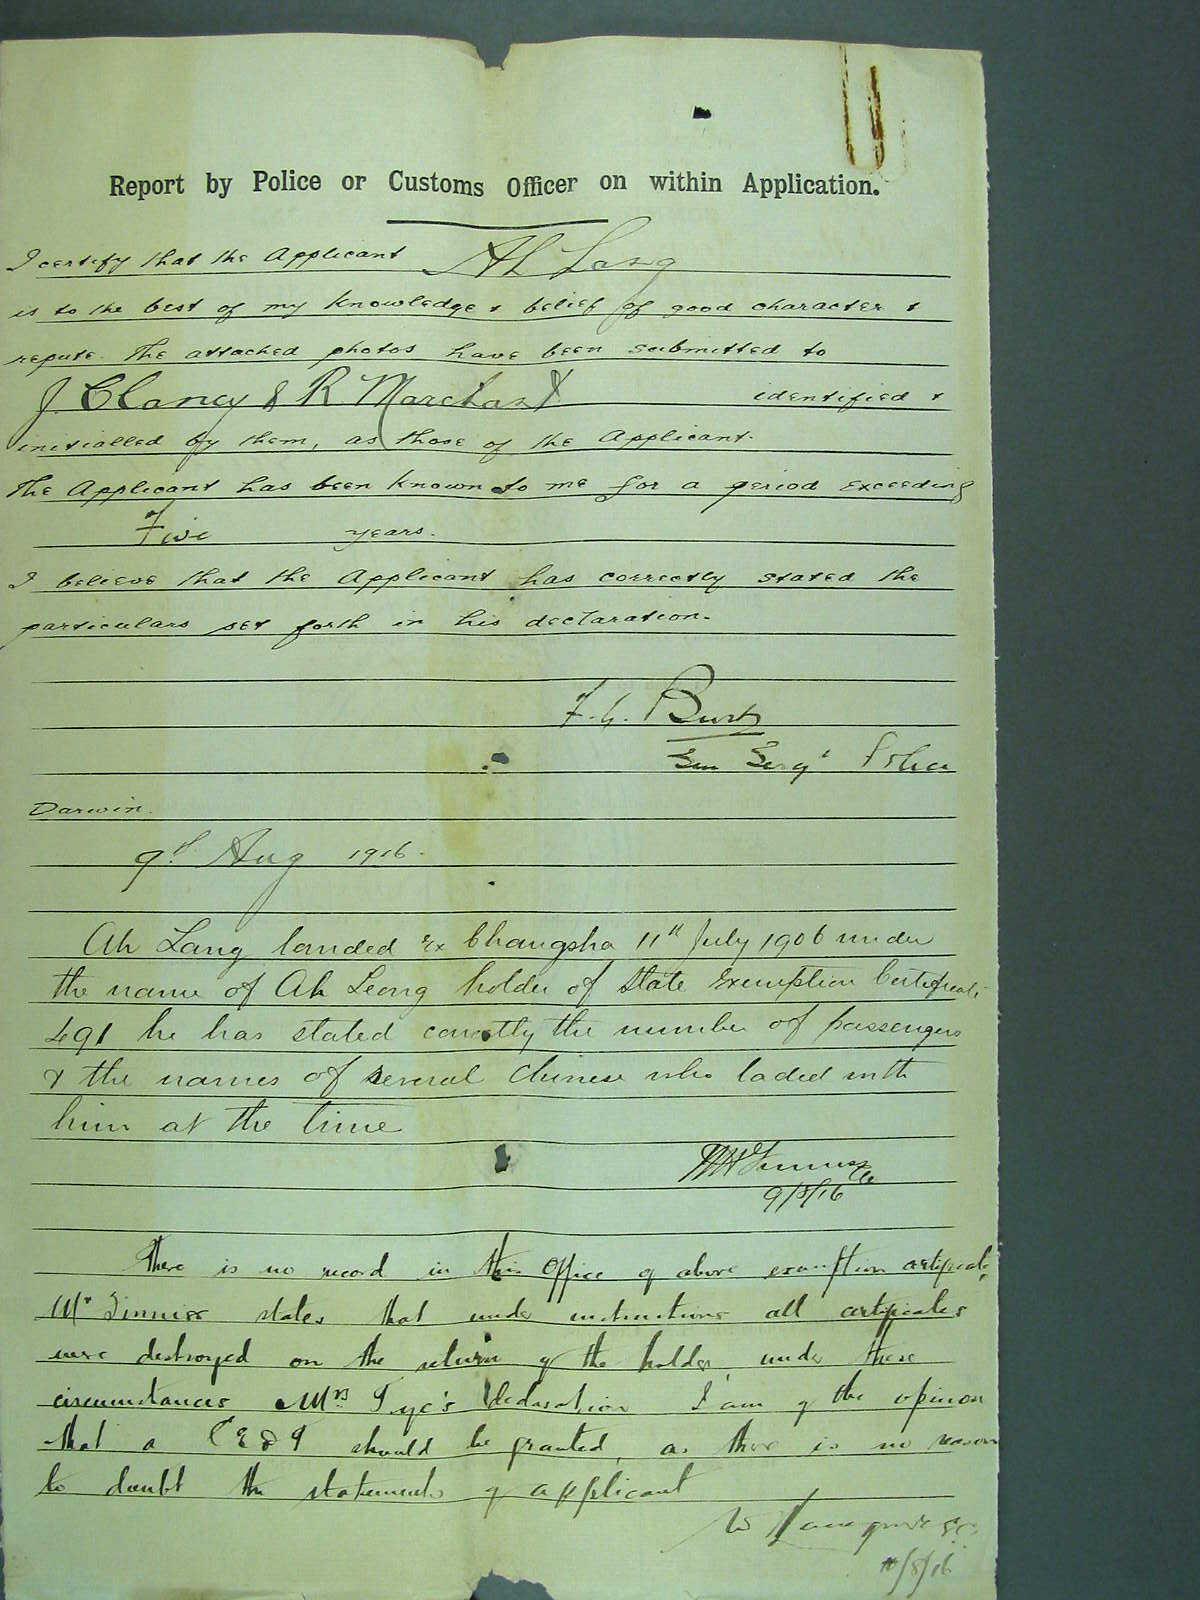 Report by Police or Customs Officer on within Application.
I certify that the Applicant Ah Lang
is to the best of my knowledge & belief of good character &
repute. The attached photos have been submitted to
J. Clancy & R Marchant identified &
initialled by them, as those of the Applicant.
The Applicant has been known to me for a period exceeding
Five years.
I believe that the Applicant has correctly stated the
particulars set forth in his declaration.
F. G. Burt
Sen Serg't Police
Darwin.
9th Aug 1916.
Ah Lang landed Ex Changsha 11th July 1906 under
the name of Ah Leong holder of State Exemption Certificate
491 he has stated correctly the number of passengers
& the names of several Chinese who laded with
him at the time
9/8/16
There is no record in this Office of above exemption certificate,
Mr Finniss states that under instructions all certificates
were destroyed on the return of the holder, under these
circumstances & Mrs Tye's declaration I am of the opinion
that a C E D T should be granted, as there is no reason
to doubt the statements of applicant
W
11/8/16